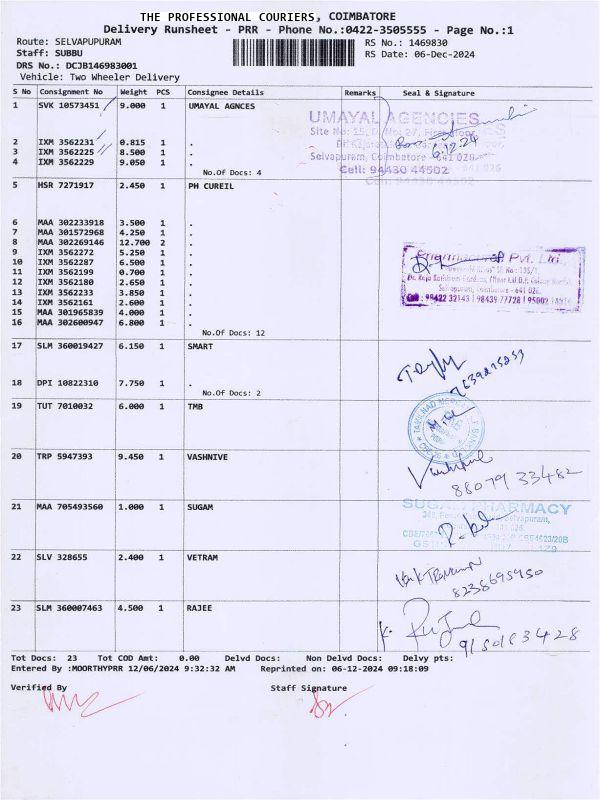 THE PROFESSIONAL COURIERS, COIMBATORE
Delivery Runsheet - PRR - Phone No.:0422-3505555 - Page No.:1
Route: SELVAPUPURAM RS No.: 1469830
Staff: SUBBU RS Date: 06-Dec-2024
DRS No.: DCJB146983001
Vehicle: Two Wheeler Delivery
S No Consignment No Weight PCS Consignee Details Remarks Seal & Signature
1 SVK 10573451 9.000 1 UMAYAL AGNCES
UMAYAL AGENCIES
2 IXM 3562231 0.815 1 .
3 IXM 3562225 8.500 1 .
6.12.24
4 IXM 3562229 9.050 1 .
Selvapuram, Coimbatore - 641 026
No.Of Docs: 4
Cell: 94430 44502
5 HSR 7271917 2.450 1 PH CUREIL
6 MAA 302233918 3.500 1 .
7 MAA 301572968 4.250 1 .
8 MAA 302269146 12.700 2 .
9 IXM 3562272 5.250 1 .
Pvt. Ltd.
10 IXM 3562287 6.500 1 .
11 IXM 3562199 0.700 1 .
12 IXM 3562180 2.650 1 .
Selvapuram, Coimbatore - 641 026.
13 IXM 3562233 3.850 1 .
Cell: 98422 32143 | 98439 77728 | 95002
14 IXM 3562161 2.600 1 .
15 MAA 301965839 4.000 1 .
16 MAA 302600947 6.800 1 .
No.Of Docs: 12
17 SLM 360019427 6.150 1 SMART
18 DPI 10822310 7.750 1 .
No.Of Docs: 2
19 TUT 7010032 6.000 1 TMB
20 TRP 5947393 9.450 1 VASHNIVE
88079 33482
21 MAA 705493560 1.000 1 SUGAM
SUGAM PHARMACY
Selvapuram,
22 SLV 328655 2.400 1 VETRAM
8238695950
23 SLM 360007463 4.500 1 RAJEE
Tot Docs: 23 Tot COD Amt: 0.00 Delvd Docs: Non Delvd Docs: Delvy pts:
Entered By :MOORTHYPRR 12/06/2024 9:32:32 AM Reprinted on: 06-12-2024 09:18:09
Verified By Staff Signature